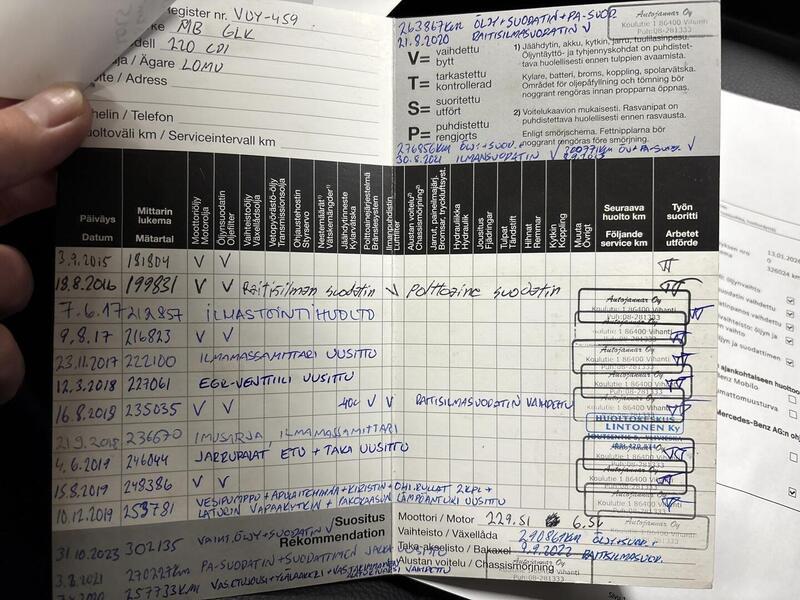 egister nr. VUY-459
ke MB GLK
dell 220 CDI
ja / Ägare LOMU
oite / Adress
helin / Telefon
uoltoväli km / Serviceintervall km
263867km ÖLJY+SUODATIN+PA-SUOD.
21.8.2020 RAITISILMASUODATIN V
Autojannar Oy
Koulutie 1 86400 Vihanti
Puh:08-281333
V= vaihdettu
bytt
T= tarkastettu
kontrollerad
S= suoritettu
utfört
P= puhdistettu
rengjorts
1) Jäähdytin, akku, kytkin, jarru, tuulilasinpesu.
Öljyntäyttö- ja tyhjennyskohdat on puhdistet-
tava huolellisesti ennen tulppien avaamista.
Kylare, batteri, broms, koppling, spolarvätska.
Området för oljepåfyllning och tömning bör
noggrant rengöras innan propparna öppnas.
2) Voitelukaavion mukaisesti. Rasvanipat on
puhdistettava huolellisesti ennen rasvausta.
Enligt smörjschema. Fettnipplarna bör
noggrant rengöras före smörjning.
276856km ÖLJY+SUOD.
30.8.2021 ILMANSUODATIN V
Päiväys
Datum
Mittarin
lukema
Mätartal
Moottoriöljy
Motorolja
Öljynsuodatin
Oljefilter
Vaihteistoöljy
Växellådsolja
Vetopyörästö-öljy
Transmissionsolja
Ohjaustehostin
Styrservo
Nestemäärät¹⁾
Vätskemängder¹⁾
Jäähdytinneste
Kylarvätska
Polttoainejärjestelmä
Bränslesystem
Ilmanpuhdistin
Luftfilter
Alustan voitelu²⁾
Chassismörjning²⁾
Jarrut, paineilmajärj.
Bromsar, tryckluftsyst.
Hydrauliikka
Hydraulik
Jousitus
Fjädringar
Tulpat
Tändstift
Hihnat
Remmar
Kytkin
Koppling
Muuta
Övrigt
Seuraava
huolto km
Följande
service km
Työn
suoritti
Arbetet
utförde
3.9.2015 181804 V V
18.8.2016 199831 V V Raitisilman suodatin V Polttoaine suodatin
7.6.17 212857 ILMASTOINTIHUOLTO
9.8.17 216823 V V
23.11.2017 222100 ILMAMASSAMITTARI UUSITTU
12.3.2018 227061 EGR-VENTTIILI UUSITTU
16.8.2018 235035 V V V V RAITISILMASUODATIN VAIHDETTU
21.9.2018 236670 IMUSARJA, ILMAMASSAMITTARI
4.6.2019 246044 JARRUPALAT ETU + TAKA UUSITTU
15.8.2019 248386 V V
10.12.2019 253781 VESIPUMPPU+APULAITEHIHNA+KIRISTIN+OHJ.RULLAT 2KPL+
LATURIN VAPAAKYTKIN+PAKOKAASUN LÄMPÖANTURI UUSITTU
Autojannar Oy
Koulutie 1 86400 Vihanti
Puh:08-281333
HUOLTOKESKUS
LINTONEN Ky
Suositus
Rekommendation
Moottori / Motor 229.51 6.5L
Vaihteisto / Växellåda 290861km ÖLJY+SUOD.+
Taka-akselisto / Bakaxel 9.9.2022 RAITISILMASUOD.
Alustan voitelu / Chassismörjning
31.10.2023 302135 VAIHT.ÖLJY+SUODATIN V
3.8.2021 270227km PA-SUODATIN
257733km
13.01.202
326024 km
ajankohtaiset huoltot
Benz Mobilo
mattomuusturva
ercedes-Benz AG:n oh